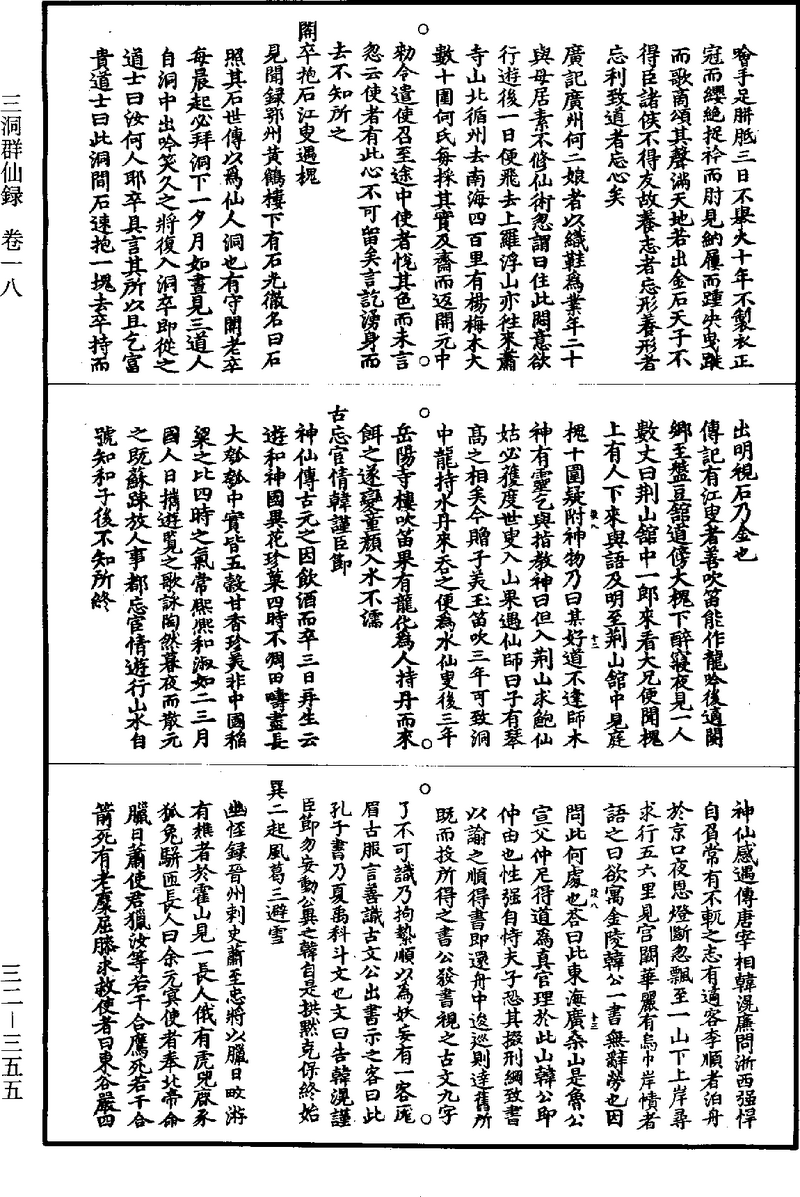 三洞群仙録　卷一八
三二—三五五
噲手足胼胝三日不舉火十年不製衣正
冠而纓絶捉衿而肘見納屨而踵決曳蹝
而歌商頌其聲滿天地若出金石天子不
得臣諸侯不得友故養志者忘形養形者
忘利致道者忘心矣
廣記廣州何二娘者以織鞋爲業年二十
與母居素不修仙術忽謂曰住此悶意欲
行遊後一日便飛去上羅浮山亦往來蕭
寺山北循州去南海四百里有楊梅木大
數十圍何氏每採其實及齋而返開元中
勑令遣使召至途中使者悅其色而未言
忽云使者有此心不可留矣言訖湧身而
去不知所之
閽卒抱石江叟遇槐
見聞録鄂州黃鶴樓下有石光徹名曰石
照其石世傳以爲仙人洞也有守閽老卒
每晨起必拜洞下一夕月如晝見三道人
自洞中出吟笑久之將復入洞卒即從之
道士曰汝何人耶卒具言其所以且乞富
貴道士曰此洞間石速抱一塊去卒持而
出明視石乃金也
傳記有江叟者善吹笛能作龍吟後適閿
鄉至盤豆館道傍大槐下醉寢夜見一人
數丈曰荆山舘中一郎來看大兄便聞槐
上有人下來與語及明至荆山舘中見庭
槐十圍疑附神物乃曰某好道不逢師木
神有靈乞與指教神曰但入荆山求鮑仙
姑必獲度世叟入山果遇仙師曰子有琴
高之相矣今贈子美玉笛吹三年可致洞
中龍持水丹來吞之便為水仙叟後三年
岳陽寺樓吹笛果有龍化為人持丹而來
餌之遂變童顏入水不濡
古忘官情韓謹臣節
神仙傳古元之因飲酒而卒三日再生云
遊和神國異花珍菓四時不凋田疇盡長
大瓠瓠中實皆五穀甘香珍美非中國稻
粱之比四時之氣常熙熙和淑如二三月
國人日攜遊覽之歌詠陶然暮夜而散元
之既蘇踈放人事都忘官情遊行山水自
號知和子後不知所終
神仙感遇傳唐宰相韓滉廉問浙西强悍
自負常有不軌之志有適客李順者泊舟
於京口夜思燈斷忽飄至一山下上岸尋
求行五六里見宮闕華麗有烏巾岸幘者
語之曰欲寓金陵韓公一書無辭勞也因
問此何處也荅曰此東海廣桑山是魯公
宣父仲尼得道為真官理於此山韓公即
仲由也性强自恃夫子恐其掇刑網致書
以諭之順得書即還舟中逡巡則達舊所
既而投所得之書公發書視之古文九字
了不可識乃拘縶順以為妖妄有一客厖
眉古服言善識古文公出書示之客曰此
孔子書乃夏禹科斗文也文曰告韓滉謹
臣節勿妄動公異之韓自是拱黙克保終始
巽二起風葛三避雪
幽怪録晉州刺史蕭至忠將以臘日畋游
有樵者於霍山見一長人俄有虎兕麇豕
狐兔駢匝長人曰余元冥使者奉北帝命
臘日蕭使君獵汝等若干合鷹死若干合
箭死有老麋屈膝求救使者曰東谷嚴四